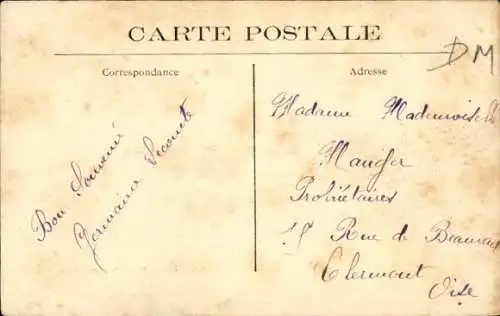 CARTE POSTALE
DM
Correspondance
Adresse
Bon Souvenir
Germaine Lecomte
Madame Mademoiselle
Propriétaires
Rue de Beauvais
Clermont
Oise